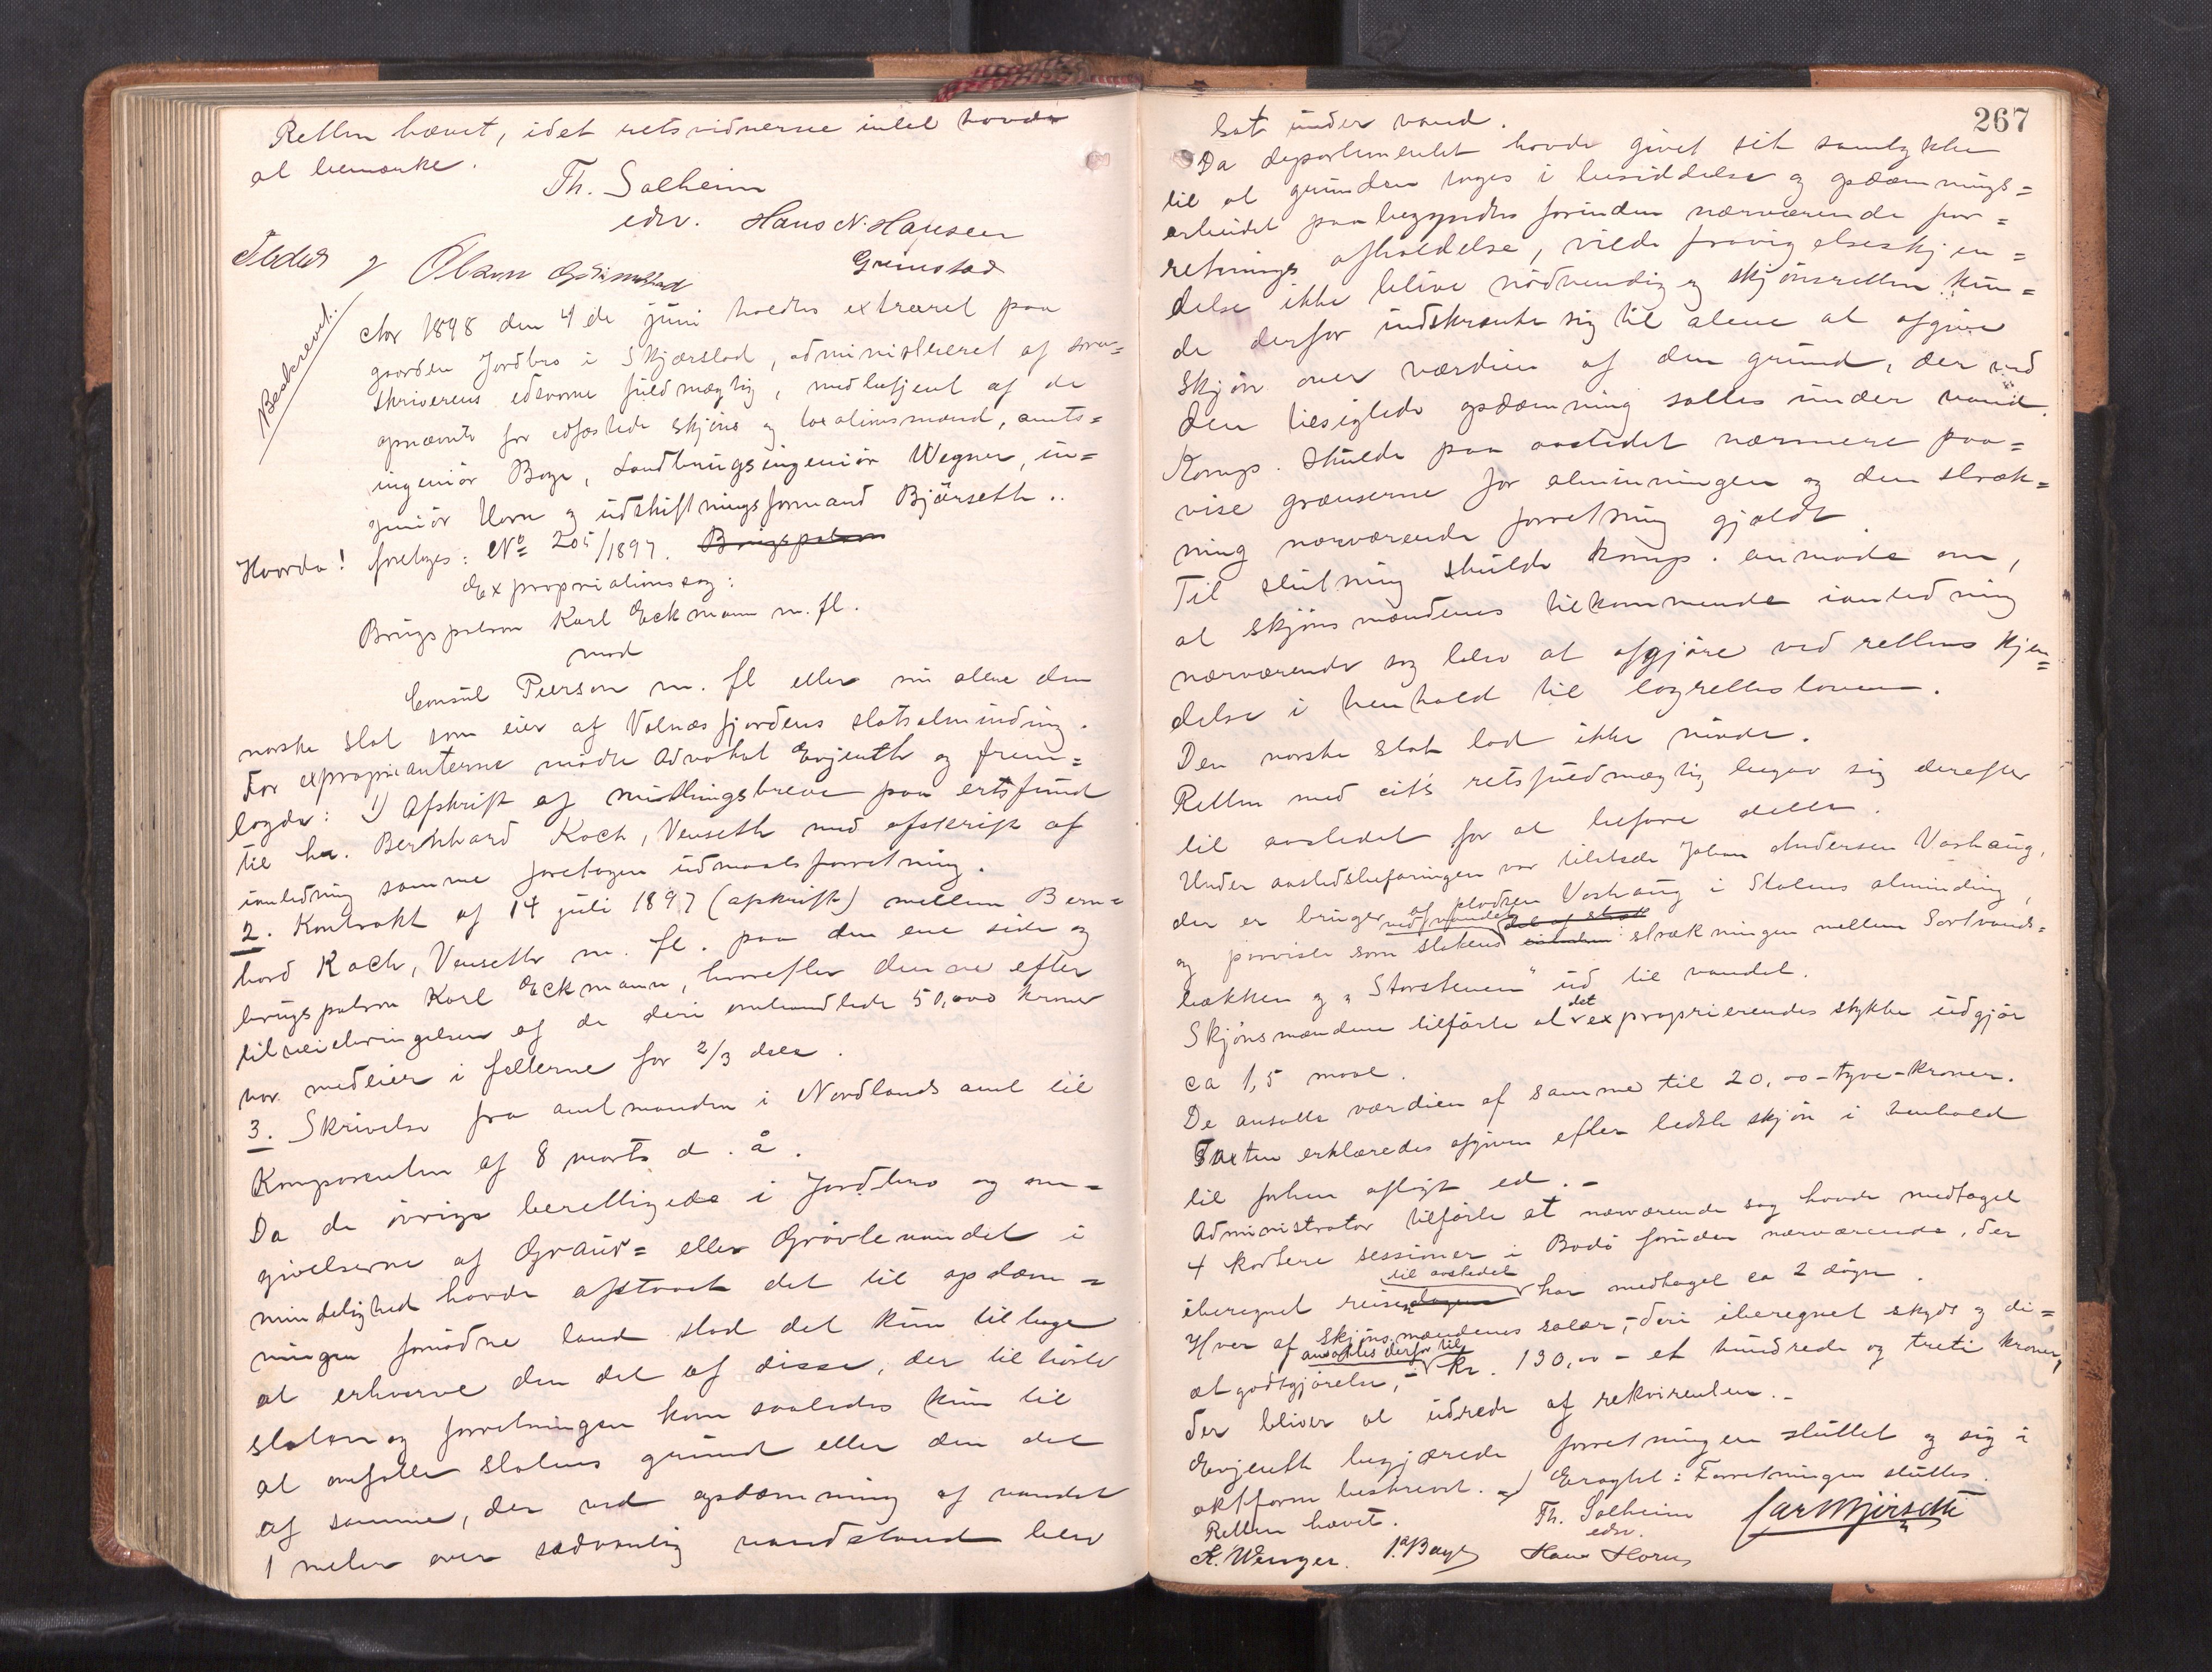 Retten hævet, idet retsvidnerne intet havde
at bemærke.
Th. Solheim
edsv. Hans N. Hansen
Grimstad
Peder J Olsen Grimstad
Beskrevet:
Aar 1898 den 4de juni holdtes extraret paa
gaarden Jordbro i Skjærstad, administreret af soren=
skriverens edsvorne fuldmægtig, medbetjent af de
opnævnte for edfæstede skjøns og taxationsmænd, amts=
ingeniør Boye, Landbrugsingeniør Wegner, in=
geniør Horn og udskiftningsformand Bjørseth..
Hvorda! foretoges: No 205/1897. Brugspatron
Expropriationssag:
Brugspatron Karl Eckmann m. fl.
mod
Consul Persson m. fl eller nu alene den
norske stat som eier af Valnæsfjordens statsalminding.
For exproprianterne mødte Advokat Evjenth og frem=
lagde: 1) Afskrift af muthingsbreve paa ertsfund
til hr. Bernhard Koch, Venseth med afskrift af
ianledning samme foretagen udmaalsforretning.
2. Kontrakt af 14 juli 1897 (afskrift) mellem Bern=
hard Koch, Venseth m. fl. paa den ene side og
brugspatron Karl Eckmann, hvorefter denne efter
tilveiebringelsen af de deri omhandlede 50,000 kroner
var medeier i felterne for 2/3 dele.
3. Skrivelse fra amtmanden i Nordlands amt til
Komparenten af 8 marts d. å.
Da de øvrige berettigede i Jordbro og om=
givelserne af Grauv= eller Grøvlevandet i
mindelighed havde afstaaet det til opdæm=
ningen fornødne land stod det kun tilbage
at erhverve den del af disse, der tilhørte
staten og forretningen kom saaledes kun til
at omfatte statens grund eller den del
af samme, der ved opdæmning af vandet
1 meter over sædvanlig vandstand blev
267
sat under vand.
Da departementet havde givet sit samtykke
til at grunden toges i besiddelse og opdæmnings=
arbeidet paabegyndtes forinden nærværende for=
retnings afholdelse, vilde fravigelseskjen=
delse ikke blive nødvendig og skjønsretten kun=
de derfor indskrænke sig til alene at afgive
skjøn over værdien af den grund, der ved
den tilsigtede opdæmning sattes under vand.
Komp. skulde paa aastedet nærmere paa=
vise grænserne for almindingen og den stræk=
ning nærværende forretning gjaldt.
Til slutning skulde komp. anmode om,
at skjønsmændenes tilkommende ianledning
nærværende sag blev at afgjøre ved rettens kjen=
delse i henhold til lagretteloven.
Den norske stat lod ikke møde.
Retten med cit's retsfuldmægtig begav sig derefter
til aastedet for at befare dette.
Under aastedsbefaringen var tilstede Johan Andersen Vashaug,
der er bruger af pladsen Vashaug i Statens alminding,
og paaviste som statens ved vandet del af strak strækningen mellem Sortvands=
bækken og "Storstenen" ud til vandet.
Skjønsmændene tilførte at det exproprierendes stykke udgjør
ca 1,5 maal.
De ansatte værdien af samme til 20,00 - tyve - kroner.
Taxten erklæredes afgiven efter bedste skjøn i henhold
til forhen aflagt ed. -
Administrator tilførte at nærværende sag havde medtaget
4 kortere sessioner i Bodø foruden nærværende, der
iberegnet reisen til aastedet har medtaget ca 2 døgn.
Hver af skjønsmændenes salær, - deri iberegnet skyds og di=
ætgodtgjørelse, - ansættes derfor til kr. 130,00 - et hundrede og treti kroner,
der bliver at udrede af rekvirenten. -
Evjenth begjærede forretningen sluttet og sig i
aktform beskrevet. - Eragtet: Forretningen sluttes.
Retten hævet.
Th. Solheim
edsv.
Carl Bjørseth
K. Wenger. P. Boye Hans Horn